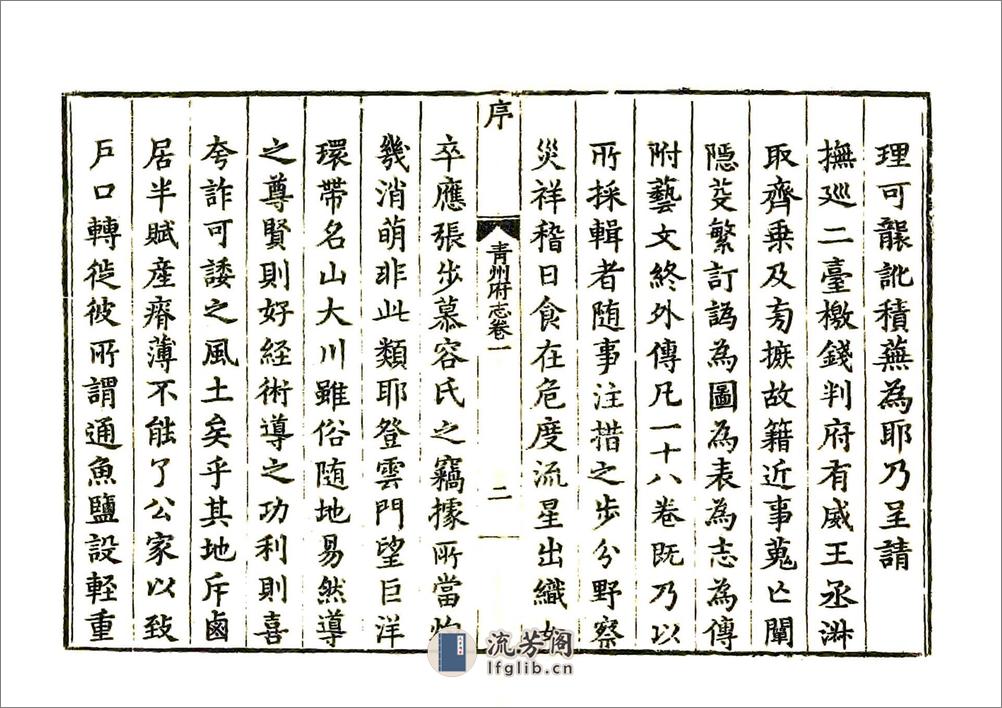 理可襲訛積蕪為耶乃呈請
撫巡二臺檄錢判府有威王丞淋
取齊乗及旁摭故籍近事蒐亡闡
隱芟繁訂譌為圖為表為志為傳
附藝文終外傳凡一十八卷既乃以
所採輯者随事注措之步分野察
災祥稽日食在危度流星出織女
序
青州府志卷一
二
卒應張步慕容氏之竊據所當
幾消萌非此類耶登雲門望巨洋
環帶名山大川雖俗随地易然導
之尊賢則好経術導之功利則喜
夸詐可諉之風土矣乎其地斥鹵
居半賦産瘠薄不能了公家以致
戶口轉徙彼所謂通魚鹽設軽重
流芳阁
lfglib.cn